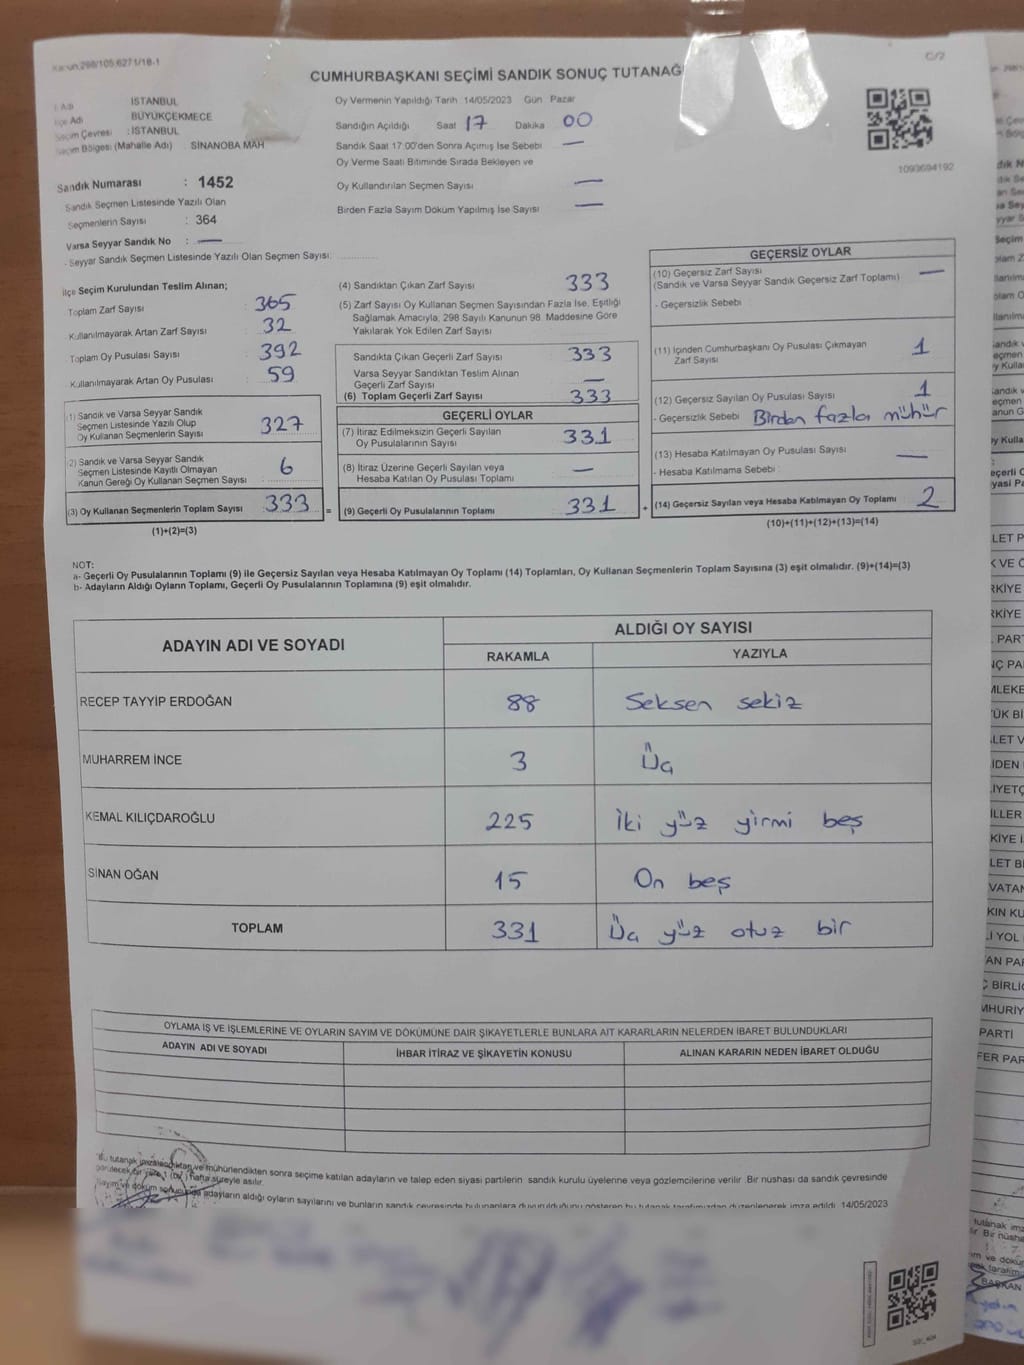 Kanun:298/105,6271/18-1
C/2
CUMHURBAŞKANI SEÇİMİ SANDIK SONUÇ TUTANAĞI
İl Adı İSTANBUL
İlçe Adı BÜYÜKÇEKMECE
Seçim Çevresi : İSTANBUL
Seçim Bölgesi (Mahalle Adı) SİNANOBA MAH
Sandık Numarası : 1452
Sandık Seçmen Listesinde Yazılı Olan
Seçmenlerin Sayısı : 364
Varsa Seyyar Sandık No : —
- Seyyar Sandık Seçmen Listesinde Yazılı Olan Seçmen Sayısı:
Oy Vermenin Yapıldığı Tarih 14/05/2023 Gün Pazar
Sandığın Açıldığı Saat 17 Dakika 00
Sandık Saat 17:00'den Sonra Açılmış İse Sebebi —
Oy Verme Saati Bitiminde Sırada Bekleyen ve
Oy Kullandırılan Seçmen Sayısı —
Birden Fazla Sayım Döküm Yapılmış İse Sayısı —
1093694192
İlçe Seçim Kurulundan Teslim Alınan;
Toplam Zarf Sayısı : 365
Kullanılmayarak Artan Zarf Sayısı : 32
Toplam Oy Pusulası Sayısı : 392
Kullanılmayarak Artan Oy Pusulası : 59
(1) Sandık ve Varsa Seyyar Sandık
Seçmen Listesinde Yazılı Olup
Oy Kullanan Seçmenlerin Sayısı 327
(2) Sandık ve Varsa Seyyar Sandık
Seçmen Listesinde Kayıtlı Olmayan
Kanun Gereği Oy Kullanan Seçmen Sayısı 6
(3) Oy Kullanan Seçmenlerin Toplam Sayısı 333 =
(1)+(2)=(3)
(4) Sandıktan Çıkan Zarf Sayısı 333
(5) Zarf Sayısı Oy Kullanan Seçmen Sayısından Fazla İse, Eşitliği
Sağlamak Amacıyla, 298 Sayılı Kanunun 98. Maddesine Göre
Yakılarak Yok Edilen Zarf Sayısı
Sandıkta Çıkan Geçerli Zarf Sayısı 333
Varsa Seyyar Sandıktan Teslim Alınan
Geçerli Zarf Sayısı —
(6) Toplam Geçerli Zarf Sayısı 333
GEÇERLİ OYLAR
(7) İtiraz Edilmeksizin Geçerli Sayılan
Oy Pusulalarının Sayısı 331
(8) İtiraz Üzerine Geçerli Sayılan veya
Hesaba Katılan Oy Pusulası Toplamı —
(9) Geçerli Oy Pusulalarının Toplamı 331 +
GEÇERSİZ OYLAR
(10) Geçersiz Zarf Sayısı
(Sandık ve Varsa Seyyar Sandık Geçersiz Zarf Toplamı) —
- Geçersizlik Sebebi :
(11) İçinden Cumhurbaşkanı Oy Pusulası Çıkmayan
Zarf Sayısı 1
(12) Geçersiz Sayılan Oy Pusulası Sayısı 1
- Geçersizlik Sebebi Birden fazla mühür
(13) Hesaba Katılmayan Oy Pusulası Sayısı —
- Hesaba Katılmama Sebebi :
(14) Geçersiz Sayılan veya Hesaba Katılmayan Oy Toplamı 2
(10)+(11)+(12)+(13)=(14)
NOT:
a- Geçerli Oy Pusulalarının Toplamı (9) ile Geçersiz Sayılan veya Hesaba Katılmayan Oy Toplamı (14) Toplamları, Oy Kullanan Seçmenlerin Toplam Sayısına (3) eşit olmalıdır. (9)+(14)=(3)
b- Adayların Aldığı Oyların Toplamı, Geçerli Oy Pusulalarının Toplamına (9) eşit olmalıdır.
ADAYIN ADI VE SOYADI ALDIĞI OY SAYISI
RAKAMLA YAZIYLA
RECEP TAYYİP ERDOĞAN 88 Seksen sekiz
MUHARREM İNCE 3 Üç
KEMAL KILIÇDAROĞLU 225 İki yüz yirmi beş
SİNAN OĞAN 15 On beş
TOPLAM 331 Üç yüz otuz bir
OYLAMA İŞ VE İŞLEMLERİNE VE OYLARIN SAYIM VE DÖKÜMÜNE DAİR ŞİKAYETLERLE BUNLARA AİT KARARLARIN NELERDEN İBARET BULUNDUKLARI
ADAYIN ADI VE SOYADI İHBAR İTİRAZ VE ŞİKAYETİN KONUSU ALINAN KARARIN NEDEN İBARET OLDUĞU
Bu tutanak imzalandıktan ve mühürlendikten sonra seçime katılan adayların ve talep eden siyasi partilerin sandık kurulu üyelerine veya gözlemcilerine verilir. Bir nüshası da sandık çevresinde
görülecek bir yere 1 (bir) hafta süreyle asılır.
Sayım ve döküm sonucunda adayların aldığı oyların sayılarını ve bunların sandık çevresinde bulunanlara duyurulduğunu gösteren bu tutanak tarafımızdan düzenlenerek imza edildi. 14/05/2023